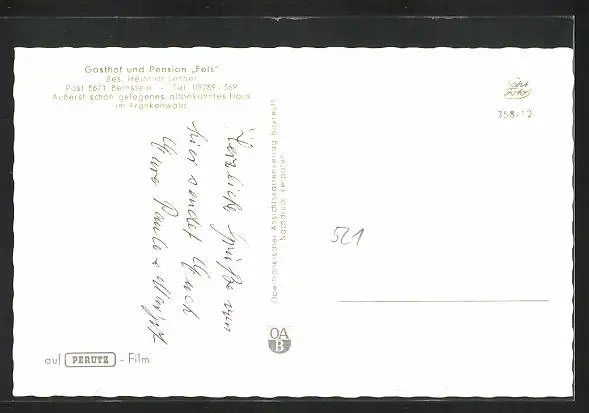 Gasthof und Pension „Fels"
Bes. Heinrich
Post 8671 Bernstein - Tel 09289 - 369
Äußerst schön gelegenes altbekanntes Haus
im Frankenwald
Herzliche Grüße von
hier sendet Euch
Eure Paula &
Oberfränkischer Ansichtskartenverlag Bayreuth
Nachdruck verboten
OA
B
echt
Foto
358/12
521
auf PERUTZ - Film